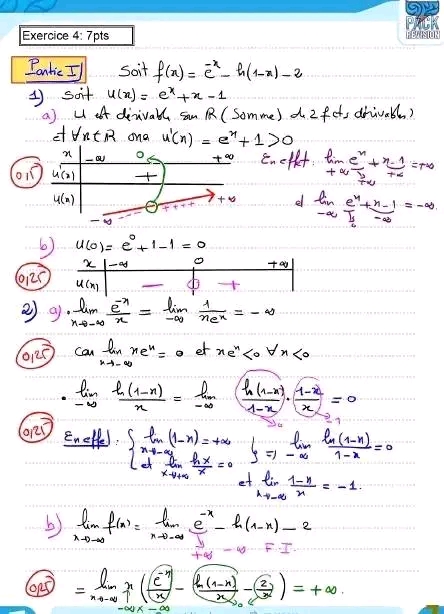 PACK
REVISION
Exercice 4: 7pts
Partie I) Soit f(x) = e^-x - ln(1-x) - 2
1) Soit u(x) = e^x + x - 1
a) u est dérivable sur R (Somme) de 2 fcts dérivables)
et ∀x∈R on a u'(x) = e^x + 1 > 0
x | -∞ 0 +∞
0,5
u'(x) | +
u(x) | -∞ ++++ +∞
En effet: lim +∞ e^x + x-1 = +∞
+∞ +∞
et lim -∞ e^x + x-1 = -∞.
0 -∞
b) u(0) = e^0 + 1 - 1 = 0
0,25
x | -∞ 0 +∞
u(x) | - 0 +
2) a) • lim x→-∞ e^-x/x = lim -∞ 1/(xe^x) = -∞
0,25 car lim x→-∞ xe^x = 0 et xe^x < 0 ∀x<0
• lim -∞ ln(1-x)/x = lim -∞ ln(1-x)/(1-x) · (1-x)/x = 0
0 -1
0,25 En effet: { lim x→-∞ (1-x) = +∞ et lim x→+∞ ln x/x = 0 } => lim -∞ ln(1-x)/(1-x) = 0
et lim x→-∞ (1-x)/x = -1.
b) lim x→-∞ f(x) = lim x→-∞ e^-x - ln(1-x) - 2
+∞ -∞ F.I.
0,25 = lim x→-∞ x (e^-x/x - ln(1-x)/x - 2/x) = +∞.
-∞ × -∞ 0 0